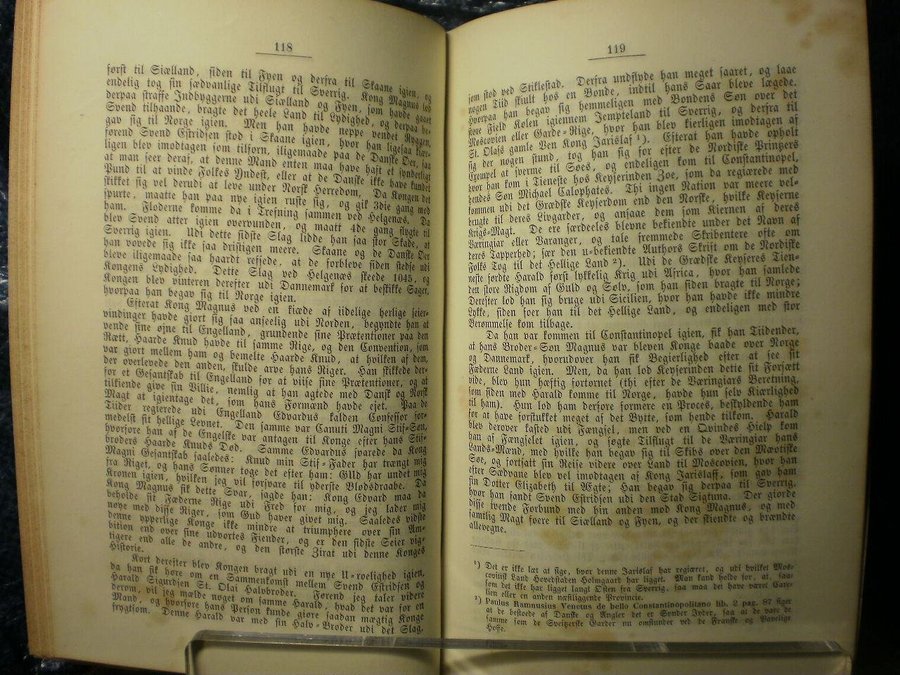 118
først til Siælland, siden til Fyen og derfra til Skaane igien, og
endelig tog sin sædvanlige Tilflugt til Sverrig. Kong Magnus lod
derpaa straffe Indbyggerne udi Siælland og Fyen, som havde gaaet
Svend tilhaande, bragte det heele Land til Lydighed, og derpaa be-
gav sig til Norge igien. Men han havde neppe vendt Ryggen,
førend Svend Estridsen stod i Skaane igien, hvor han ligesaa kier-
ligen blev imodtagen som tilforn, iligemaade paa de Danske Øer, saa
at man seer deraf, at denne Mand enten maa have havt et synderligt
Pund til at vinde Folkes Yndest, eller at de Danske ikke have kundet
skikket sig vel derudi at leve under Norsk Herredom. Da Kongen det
spurte, maatte han paa nye igien ruste sig, og gik 3die gang med
ham. Floderne komme da i Træfning sammen ved Helgenæs. Da
blev Svend atter igien overvunden, og maatt 4de gang flygte til
Sverrig igien. Udi dette sidste Slag lidde han saa stor Skade, at
han vovede sig ikke saa dristigen meere. Skaane og de Danske Øer
bleve iligemaade saa haardt refsede, at de forbleve siden stedse udi
Kongens Lydighed. Dette Slag ved Helgenæs skeede 1045, og
Kongen blev vinteren derefter udi Dannemark for at beskikke Sager,
hvorpaa han begav sig til Norge igien.
Efterat Kong Magnus ved en kiæde af iidelige herlige seier-
vindinger havde giort sig saa anseelig udi Norden, begyndte han at
vende sine øjne til Engelland, grundende sine Prætentioner paa den
Rætt, Haarde Knud havde til samme Rige, og den Convention, som
var giort mellem ham og bemelte Haarde Knud, at hvilken af dem,
der overlevede den anden, skulde arve hans Riger. Han skikkede der-
for et Gesantskab til Engelland for at viise sine Prætentioner, og at
tilkiende give sin Villie, nemlig at han agtede med Dansk og Norsk
Magt at igientage det, som hans Formænd havde ejet. Paa de
Tiider regierede udi Engelland Edvardus kalden Confessor for-
medelst sit hellige Levnet. Den samme var Canuti Magni Stif-Søn,
hvorfore han af de Engelske var antagen til Konge efter hans Stif-
broders Haarde Knuds Død. Samme Edvardus svarede da Kong
Magni Gesantskab saaledes: Knud min Stif-Fader har trængt mig
fra Riget, og hans Sønner toge det efter ham: Gud har undet mig
Kronen igien, hvilken jeg vil forsvare til yderste Blodsdraabe. Da
Kong Magnus fik dette Svar, sagde han: Kong Edvard maa da
beholde sit Fæderne Rige udi Fred for mig, og jeg lader mig
nøye med disse Riger, som Gud haver givet mig. Saaledes vidste
denne ypperlige Konge ikke mindre at triumphere over sin Am-
bition end over sine udvortes Fiender, og er den sidste Seier vig-
tigere end alle de andre, og den største Zirat udi denne Konges
Historie.
Kort derefter blev Kongen bragt udi en nye U-roelighed igien,
da han fik høre om en Sammenkomst mellem Svend Estridsen og
Harald Sigurdsen St. Olai Halvbroder. Førend jeg taler videre
derom, vil jeg mælde noget om samme Harald, hvad det var for en
Mand, og hvorfore hans Person kunde giøre saadan mægtig Konge
frygtsom. Denne Harald var med sin Halv-Broder udi det Slag,
119
som stod ved Stiklestad. Derfra undflyde han meget saaret, og laae
nogen Tiid skult hos en Bonde, indtil hans Saar bleve lægede.
Hvorpaa han begav sig hemmeligen med Bondens Søn over det
store Field Kølen igiennem Jempteland til Sverrig, og derfra til
Moscovien eller Garde-Rige, hvor han blev kierligen imodtagen af
St. Olafs gamle Ven Kong Jarislaf ¹). Efterat han havde opholt
sig der nogen stund, tog han sig for efter de Nordiske Printzers
Exempel at sværme til Søes, og endeligen kom til Constantinopel,
hvor han kom i Tieneste hos Keyserinden Zoe, som da regiærede med
hendes Søn Michael Calophates. Thi ingen Nation var meere vel-
kommen udi det Grædske Keyserdom end den Norske, hvilke Keyserne
brugte til deres Livgarder, og ansaae dem som Kiernen af deres
Krigs-Magt. De ere særdeeles blevne bekiendte under det Navn af
Væringiar eller Varanger, og tale fremmede Skribentere ofte om
deres Tapperhed; sær den u-bekiendte Authors Skrift om de Nordiske
Folks Tog til det Hellige Land ²). Udi de Grædske Keyseres Tien-
neste førdte Harald først lykkelig Krig udi Africa, hvor han samlede
det store Rigdom af Guld og Sølv, som han siden bragte til Norge;
Derefter lod han sig bruge udi Sicilien, hvor han havde ikke mindre
Lykke, siden foer han til det Hellige Land, og endeligen med stor
Berømmelse kom tilbage.
Da han var kommen til Constantinopel igien, fik han Tiidender,
at hans Broder-Søn Magnus var bleven Konge baade over Norge
og Dannemark, hvorudover han fik Begierlighed efter at see sit
Fæderne Land igien. Men, da han lod Keyserinden dette sit Forsætt
vide, blev hun hæftig fortørnet (thi efter de Væringiars Beretning,
som siden med Harald komme til Norge, havde hun selv Kiærlighed
til ham). Hun lod ham derfore formere en Proces, beskyldende ham
for at have forstukket meget af det Bytte, som hende tilkom. Harald
blev derover kasted udi Fængsel, men ved en Qvindes Hielp kom
han af Fængselet igien, og søgte Tilflugt til de Væringiar hans
Lands-Mænd, med hvilke han begav sig til Skibs over den Mæotiske
Søe, og fortsatt sin Reise videre over Land til Moscovien, hvor han
efter Sædvane blev vel imodtagen af Kong Jarislaff, som gav ham
sin Dotter Elizabeth til Ægte; Han begav sig derpaa til Sverrig,
hvor han fandt Svend Estridsen udi den Stad Sigtuna. Der giorde
disse tvende Forbund med hin anden mod Kong Magnus, og med
samtlig Magt foere til Siælland og Fyen, og der skiendte og brændte
allevegne.
¹) Det er ikke læt at sige, hvor denne Jarislaf har regiæret, og udi hvilket Mos-
covitisk Land Hovedstaden Holmgaard har ligget. Man kand holde for, at, saa-
som det ikke har ligget langt Østen fra Sverrig, saa maa det have været Gar-
lien eller en anden næstliggende Provincie.
²) Paulus Ramnusius Venetus de bello Constantinopolitano lib. 2 pag. 97 siger
at de bestode af Danske og Angler det er Sønder Jyder, saa at de vare de
samme som de Sveitzerske Garder nu omstunder ved de Franske og Pavelige
Hoffe.